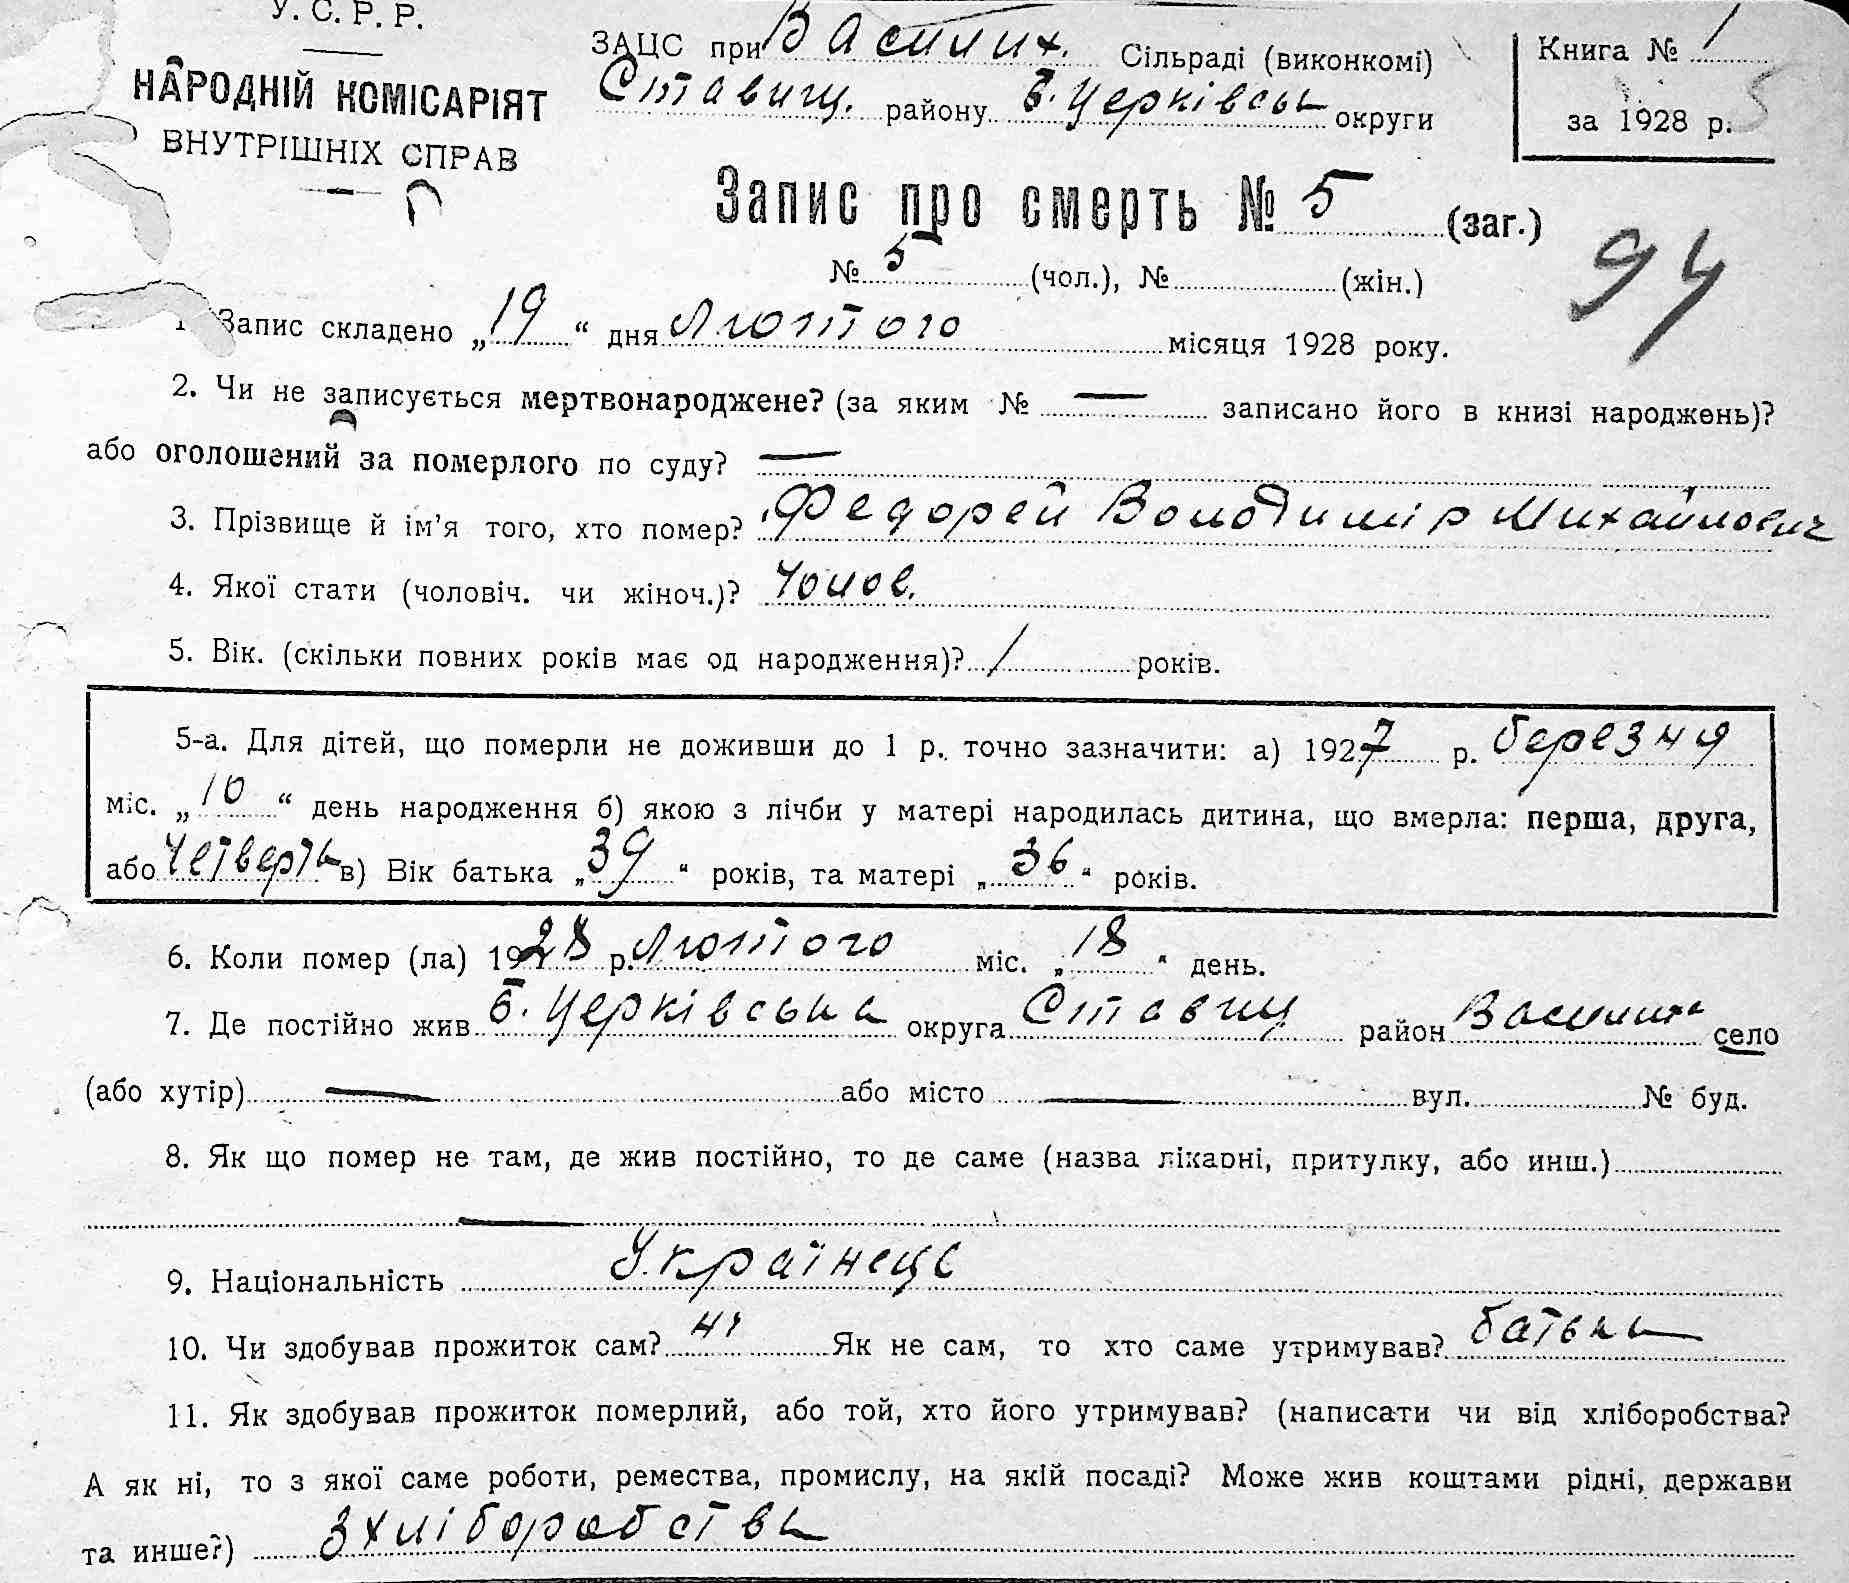 У. С. Р. Р.
НАРОДНІЙ КОМІСАРІЯТ
ВНУТРІШНІХ СПРАВ
ЗАЦС при Василих. Сільраді (виконкомі)
Ставищ. району Б. Церківськ округи
Книга № 1
за 1928 р.
Запис про смерть № 5 (заг.)
94
№ 5 (чол.), № (жін.)
1. Запис складено „19“ дня Лютого місяця 1928 року.
2. Чи не записується мертвонароджене? (за яким № — записано його в книзі народжень)?
або оголошений за померлого по суду? —
3. Прізвище й ім'я того, хто помер? Федорей Володимір Михайлович
4. Якої стати (чоловіч. чи жіноч.)? Чолов.
5. Вік. (скільки повних років має од народження)? 1 років.
5-а. Для дітей, що померли не доживши до 1 р. точно зазначити: а) 1927 р. березня
міс. „10“ день народження б) якою з лічби у матері народилась дитина, що вмерла: перша, друга,
або Четверта в) Вік батька „39“ років, та матері „36“ років.
6. Коли помер (ла) 1928 р. Лютого міс. „18“ день.
7. Де постійно жив Б. Церківська округа Ставищ район село
(або хутір) — або місто — вул. № буд.
8. Як що помер не там, де жив постійно, то де саме (назва лікарні, притулку, або инш.)
—
9. Національність Українець
10. Чи здобував прожиток сам? ні Як не сам, то хто саме утримував? батьки
11. Як здобував прожиток померлий, або той, хто його утримував? (написати чи від хліборобства?
А як ні, то з якої саме роботи, ремества, промислу, на якій посаді? Може жив коштами рідні, держави
та инше?) З хліборобства